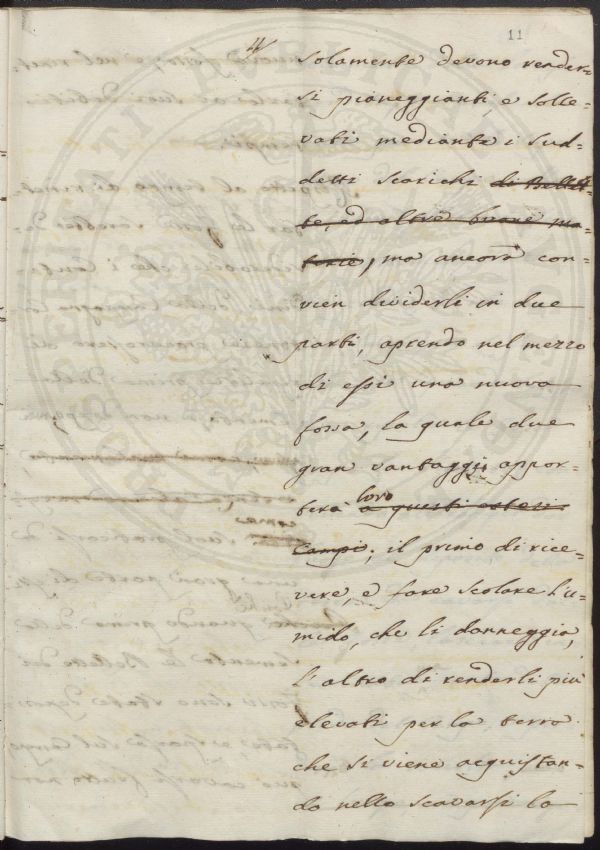 11
4
solamente devono render-
si pianeggianti, e solle-
vati mediante i sud-
detti scarichi di Bellet-
te, ed altre buone ma-
terie, ma ancora con-
vien dividerli in due
parti, aprendo nel mezzo
di essi una nuova
fossa, la quale due
gran vantaggi appor-
terà loro a questi estesi
Campi; il primo di rice-
vere, e fare scolare l'u-
mido, che li danneggia,
l'altro di renderli più
elevati per la terra
che si viene acquistan-
do nello scavarsi la